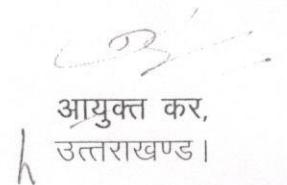 आयुक्त कर,
उत्तराखण्ड।